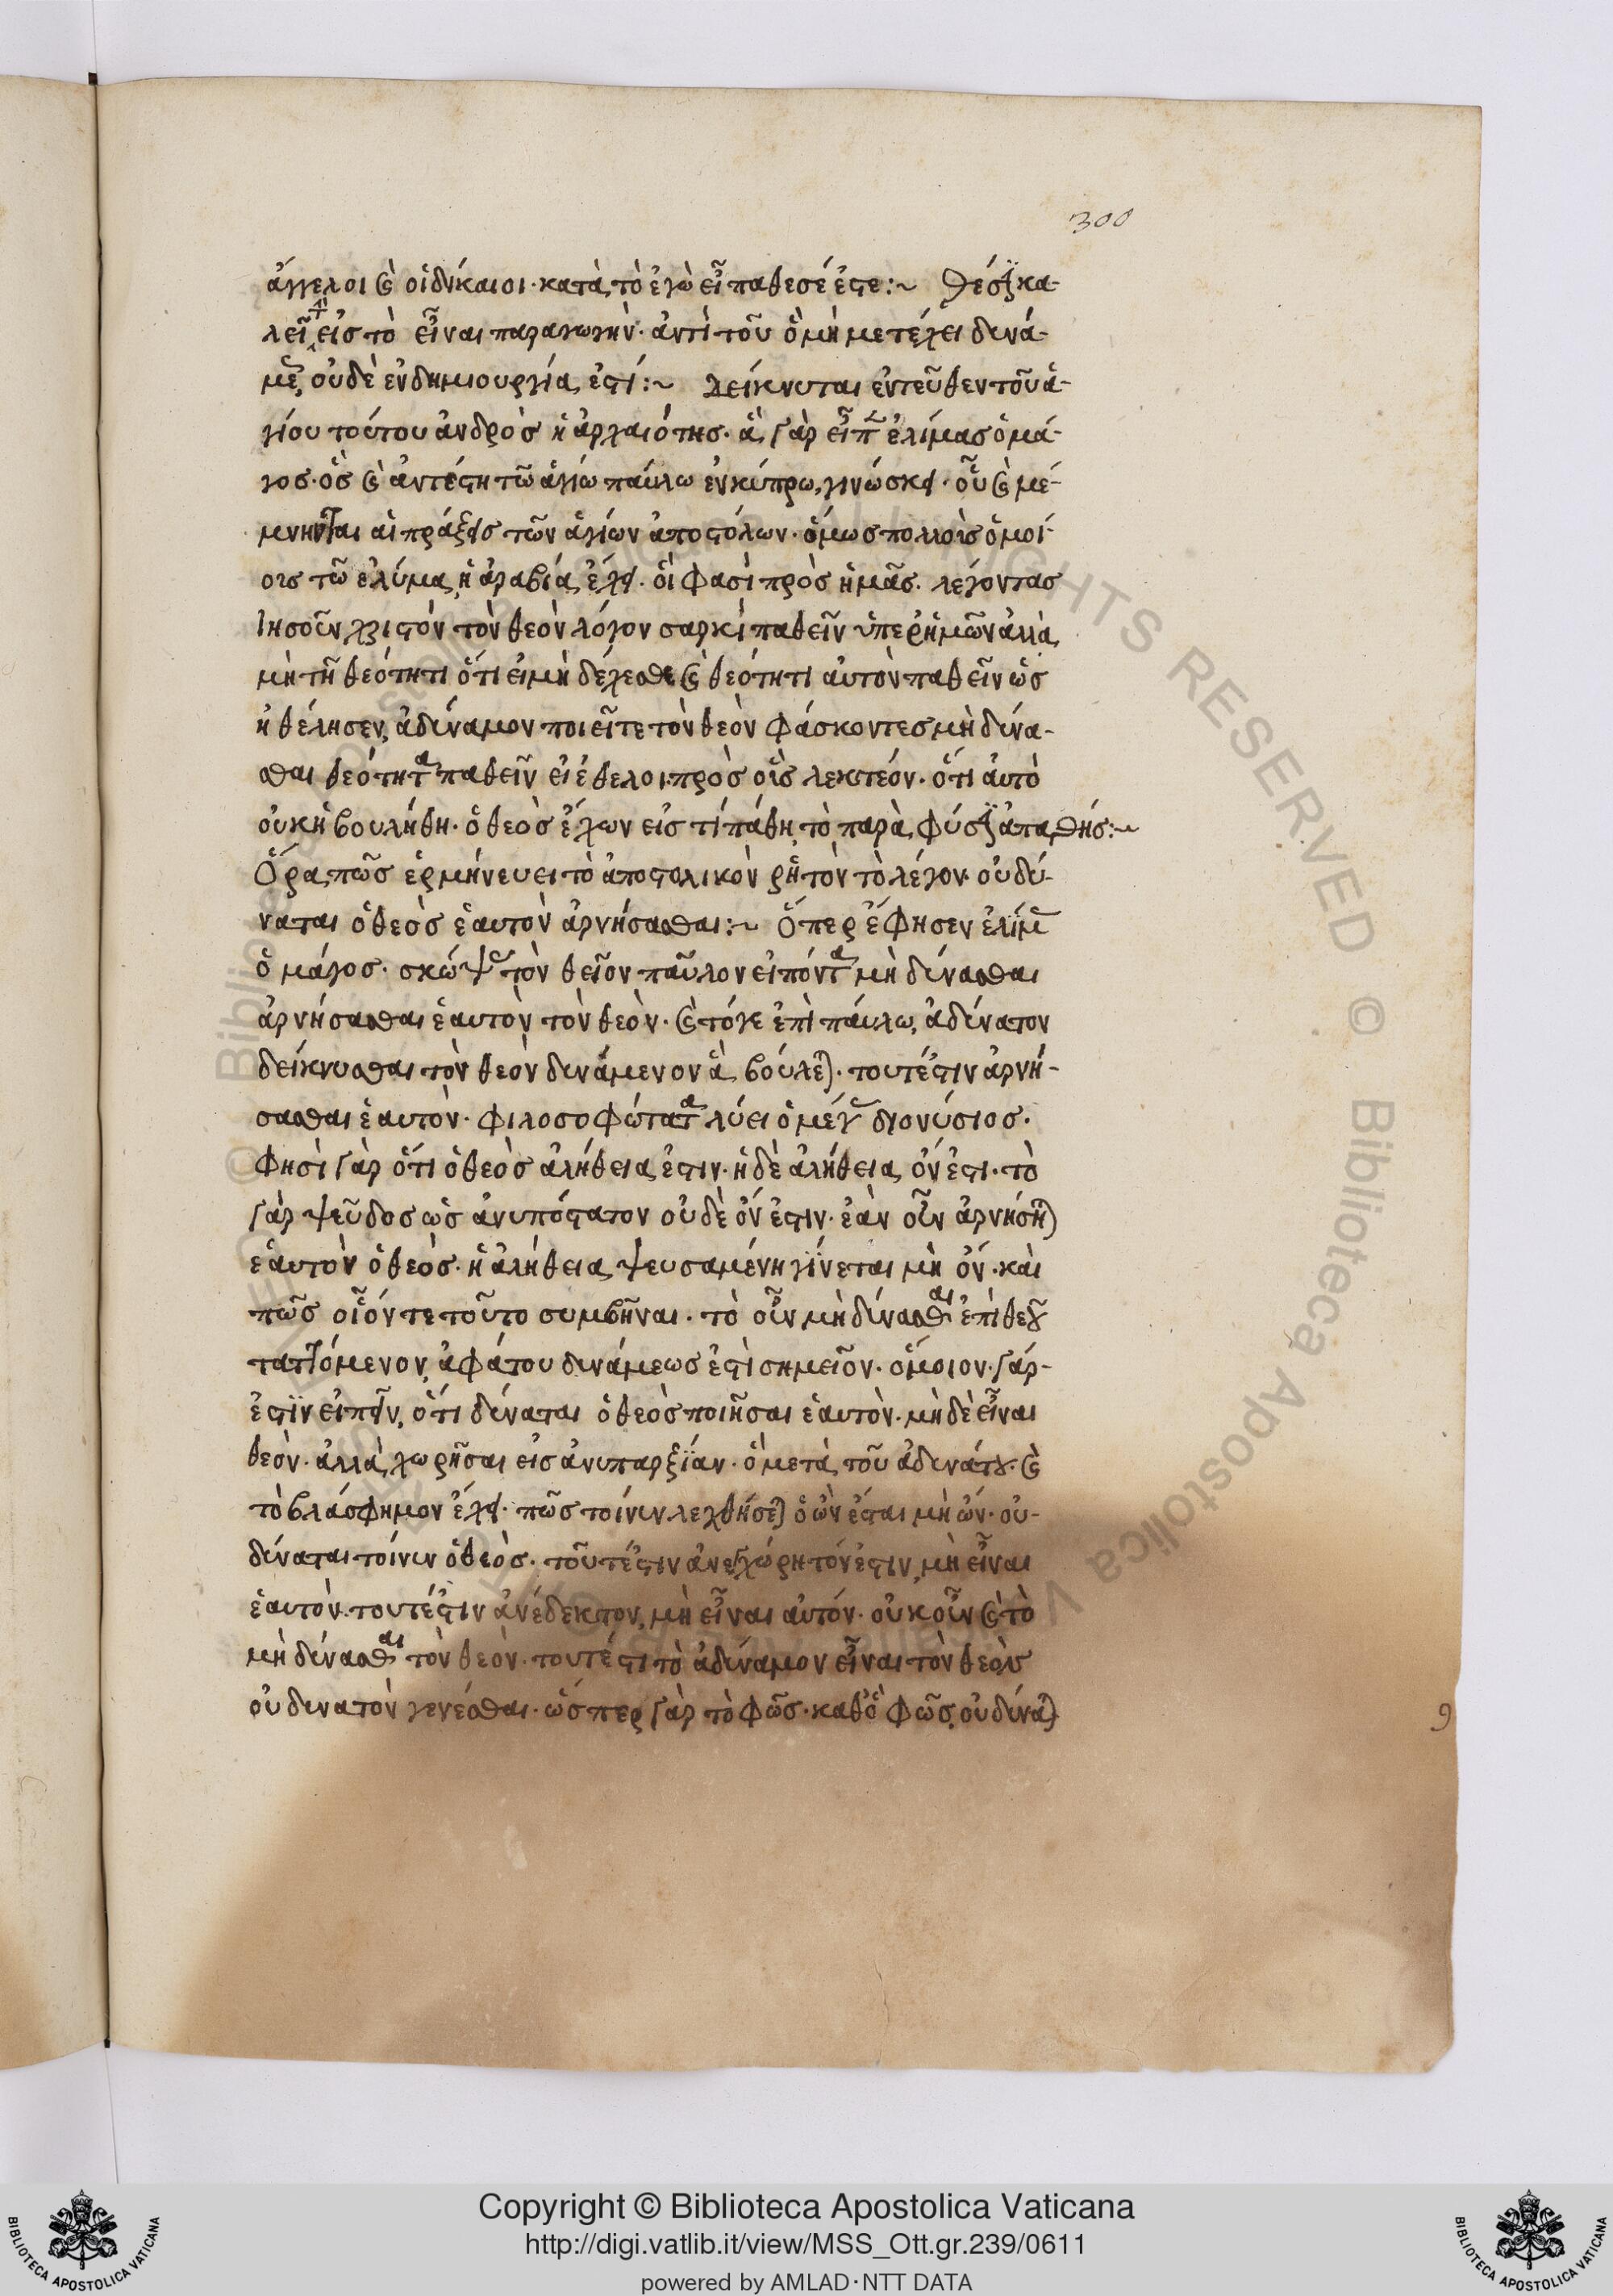 300
ἄγγελοι καὶ οἱ δίκαιοι· κατὰ τὸ ἐγὼ εἶπα θεοί ἐστε:~ Θέσιν κα-
λεῖ τὴν εἰς τὸ εἶναι παραγωγήν· ἀντὶ τοῦ ὃ μὴ μετέχει δυνά-
μεως, οὐδὲ ἐν δημιουργία ἐστί:~ Δείκνυται ἐντεῦθεν τοῦ ἁ-
γίου τούτου ἀνδρὸς ἡ ἀρχαιότης· ἃ γὰρ εἶπεν ἐλύμας ὁ μά-
γος· ὃς καὶ ἀντέστη τῶ ἁγίω παύλω ἐν κύπρω, γινώσκει· οὗ καὶ μέ-
μνηνται αἱ πράξεις τῶν ἁγίων ἀποστόλων· ὅμως πολλοὺς ὁμοί-
ους τῶ ἐλύμα ἡ ἀραβία ἔχει· οἳ φασὶ πρὸς ἡμᾶς λέγοντας
Ἰησοῦν χριστὸν τὸν θεὸν λόγον σαρκὶ παθεῖν ὑπὲρ ἡμῶν ἀλλὰ
μὴ τῆ θεότητι ὅτι εἰ μὴ δέχεσθε καὶ θεότητι αὐτὸν παθεῖν ὡς
ἠθέλησεν, ἀδύναμον ποιεῖτε τὸν θεὸν φάσκοντες μὴ δύνα-
σθαι θεότητα παθεῖν εἰ ἐθέλοι· πρὸς οὓς λεκτέον· ὅτι αὐτὸ
οὐκ ἠβουλήθη· ὁ θεὸς ἔχων εἰς τί πάθη τὸ παρὰ φύσιν ἀπαθής:~
Ὅρα πῶς ἑρμήνευει τὸ ἀποστολικὸν ῥητὸν τὸ λέγον οὐ δύ-
ναται ὁ θεὸς ἑαυτὸν ἀρνήσασθαι:~ Ὅπερ ἔφησεν ἐλύμας
ὁ μάγος· σκώψας τὸν θεῖον παῦλον εἰπόντα μὴ δύνασθαι
ἀρνήσασθαι ἑαυτὸν τὸν θεόν· καὶ τόγε ἐπὶ παύλω, ἀδύνατον
δείκνυσθαι τὸν θεὸν δυνάμενον ἃ βούλεται· τουτέστιν ἀρνή-
σασθαι ἑαυτόν· φιλοσοφώτατα λύει ὁ μέγας διονύσιος·
φησὶ γὰρ ὅτι ὁ θεὸς ἀλήθεια ἐστιν· ἡ δὲ ἀλήθεια ὄν ἐστι· τὸ
γὰρ ψεῦδος ὡς ἀνυπόστατον οὐδὲ ὄν ἐστιν· ἐὰν οὖν ἀρνήσηται
ἑαυτὸν ὁ θεός· ἡ ἀλήθεια ψευσαμένη γίνεται μὴ ὄν· καὶ
πῶς οἷόν τε τοῦτο συμβῆναι· τὸ οὖν μὴ δύνασθαι ἐπὶ θεοῦ
ταττόμενον, ἀφάτου δυνάμεως ἐστὶ σημεῖον· ὅμοιον γάρ
ἐστιν εἰπεῖν, ὅτι δύναται ὁ θεὸς ποιῆσαι ἑαυτὸν μὴ δὲ εἶναι
θεόν· ἀλλὰ χωρῆσαι εἰς ἀνυπαρξίαν· ὃ μετὰ τοῦ ἀδυνάτου· καὶ
τὸ βλάσφημον ἔχει· πῶς τοίνυν λεχθήσεται ὁ ὢν ἔσται μὴ ὤν· οὐ
δύναται τοίνυν ὁ θεός· τοῦτέστιν ἀνεγχώρητόν ἐστιν, μὴ εἶναι
ἑαυτόν· τουτέστιν ἀνένδεκτον, μὴ εἶναι αὐτόν· οὐκοῦν καὶ τὸ
μὴ δύνασθαι τὸν θεόν· τουτέστι τὸ ἀδύναμον εἶναι τὸν θεὸν
οὐ δυνατὸν γενέσθαι· ὥσπερ γὰρ τὸ φῶς· καθ᾽ ὃ φῶς, οὐ δύναται
Copyright © Biblioteca Apostolica Vaticana
http://digi.vatlib.it/view/MSS_Ott.gr.239/0611
powered by AMLAD·NTT DATA